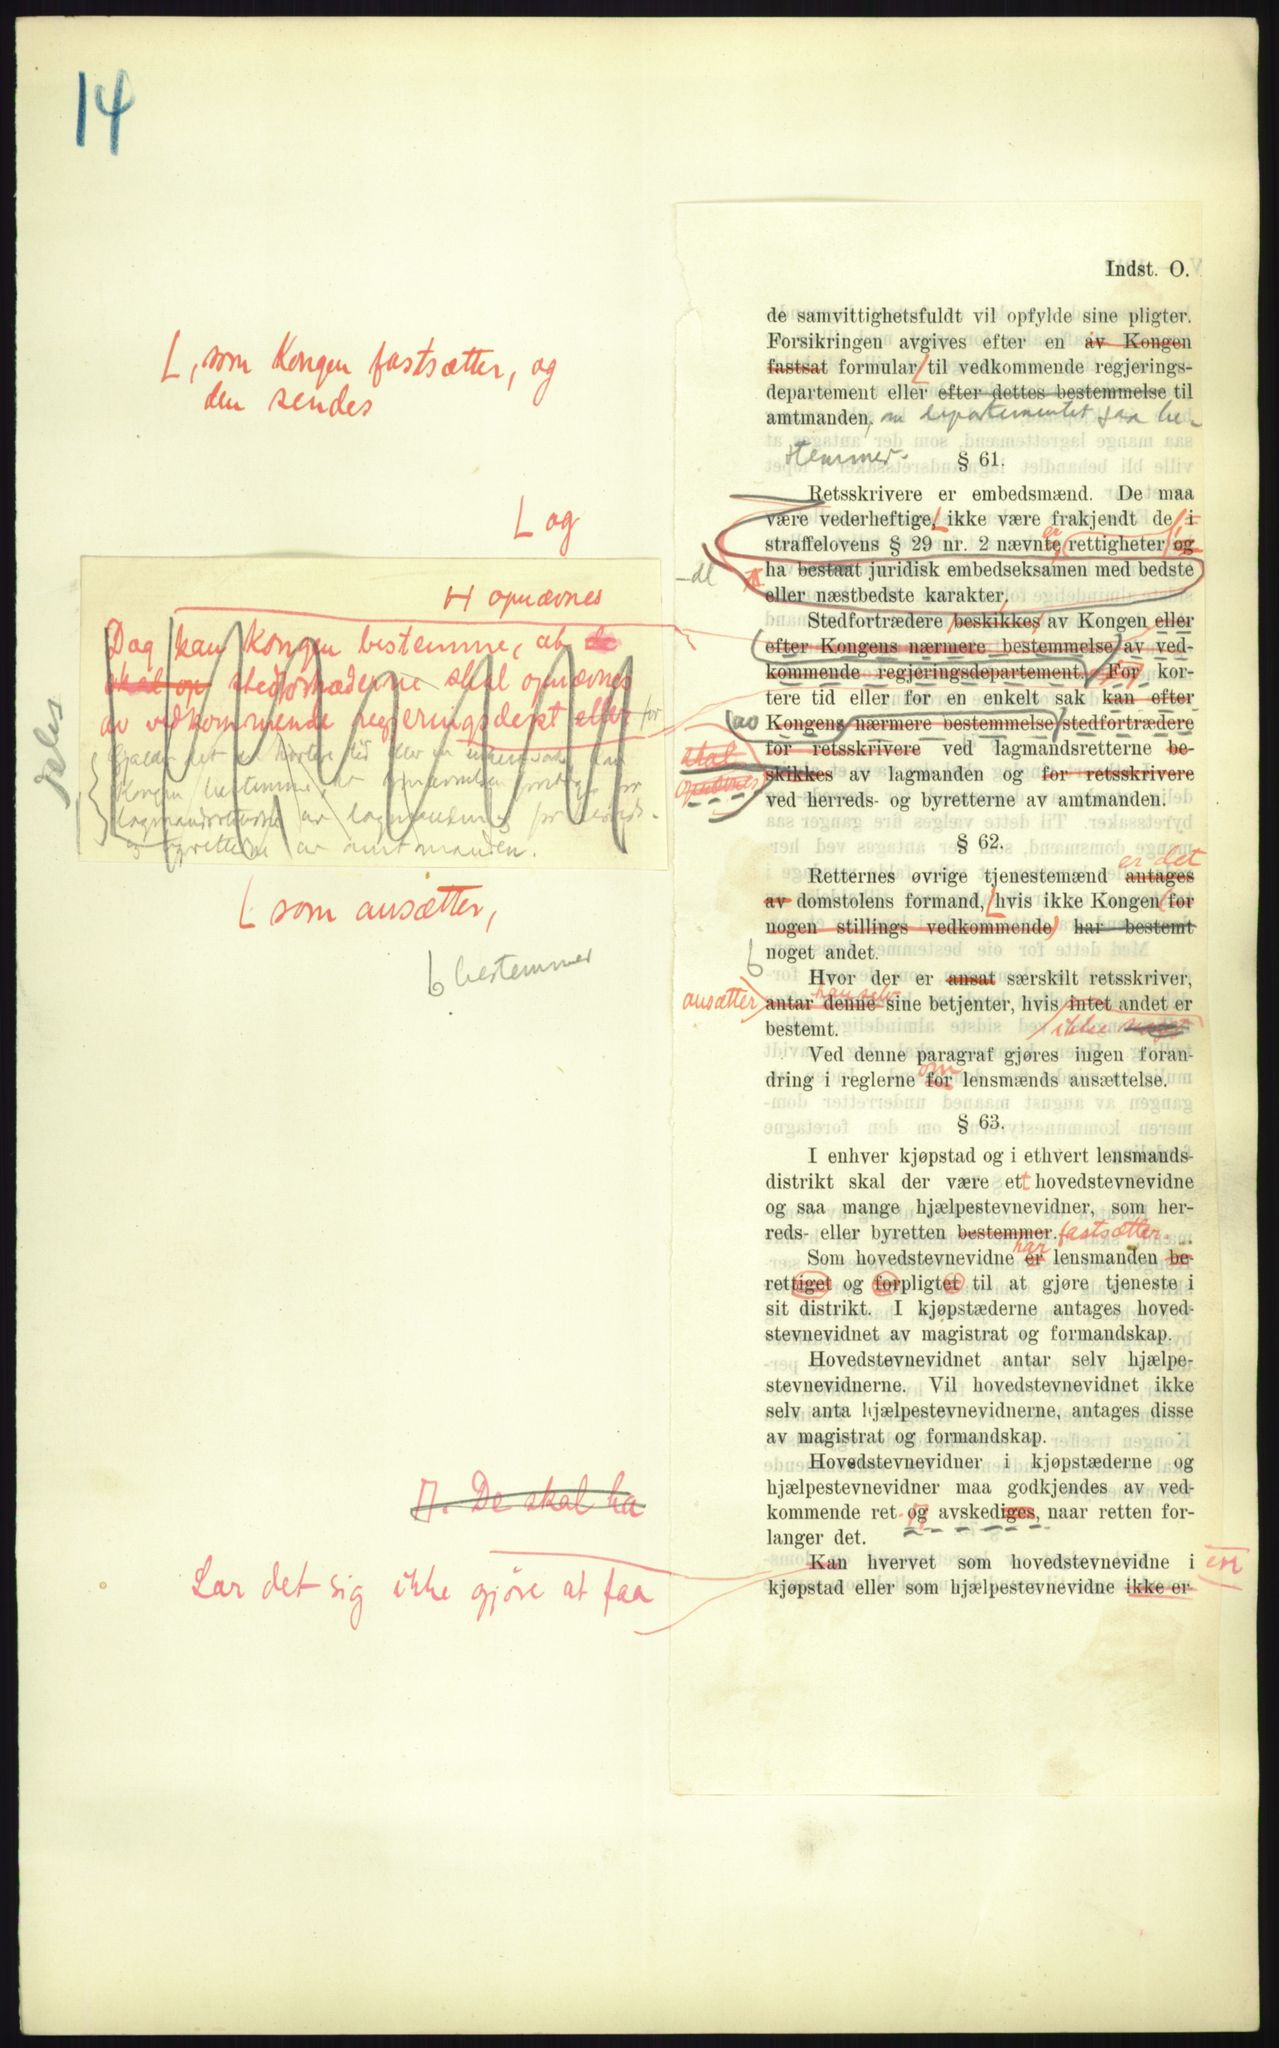 14
Indst. O.
de samvittighetsfuldt vil opfylde sine pligter.
Forsikringen avgives efter en av Kongen
fastsat formular til vedkommende regjerings-
departement eller efter dettes bestemmelse til
amtmanden, om departementet saa be-
stemmer.
L, som Kongen fastsætter, og
den sendes
§ 61.
Retsskrivere er embedsmænd. De maa
være vederheftige, ikke være frakjendt de i
straffelovens § 29 nr. 2 nævnte rettigheter og
ha bestaat juridisk embedseksamen med bedste
eller næstbedste karakter.
L og
Stedfortrædere beskikkes av Kongen eller
efter Kongens nærmere bestemmelse av ved-
kommende regjeringsdepartement. For kor-
tere tid eller for en enkelt sak kan efter
Kongens nærmere bestemmelse stedfortrædere
for retsskrivere ved lagmandsretterne be-
skikkes av lagmanden og for retsskrivere
ved herreds- og byretterne av amtmanden.
av
skal
opnævnes
H opnævnes
Dog kan Kongen bestemme, at de
skal op stedfortræderne skal opnævnes
av vedkommende regjeringsdept eller for
Gjælder det en kortere tid eller en enkelt sak kan
Kongen bestemme at opnævnelsen foretages for
lagmandsretterne av lagmanden og for herreds-
og byretterne av amtmanden.
deles
§ 62.
Retternes øvrige tjenestemænd antages
er det
av domstolens formand, hvis ikke Kongen for
nogen stillings vedkommende har bestemt
noget andet.
L som ansætter,
bestemmer
Hvor der er ansat særskilt retsskriver,
antar denne sine betjenter, hvis intet andet er
bestemt.
ansætter
han selv
ikke noget
Ved denne paragraf gjøres ingen foran-
dring i reglerne for lensmænds ansættelse.
om
§ 63.
I enhver kjøpstad og i ethvert lensmands-
distrikt skal der være ett hovedstevnevidne
og saa mange hjælpestevnevidner, som her-
reds- eller byretten bestemmer. fastsætter.
Som hovedstevnevidne er lensmanden be-
har
rettiget og forpligtet til at gjøre tjeneste i
sit distrikt. I kjøpstæderne antages hoved-
stevnevidnet av magistrat og formandskap.
Hovedstevnevidnet antar selv hjælpe-
stevnevidnerne. Vil hovedstevnevidnet ikke
selv anta hjælpestevnevidnerne, antages disse
av magistrat og formandskap.
Hovedstevnevidner i kjøpstæderne og
hjælpestevnevidner maa godkjendes av ved-
kommende ret og avskediges, naar retten for-
langer det.
De skal ha
Kan hvervet som hovedstevnevidne i
kjøpstad eller som hjælpestevnevidne ikke er-
Lar det sig ikke gjøre at faa
en